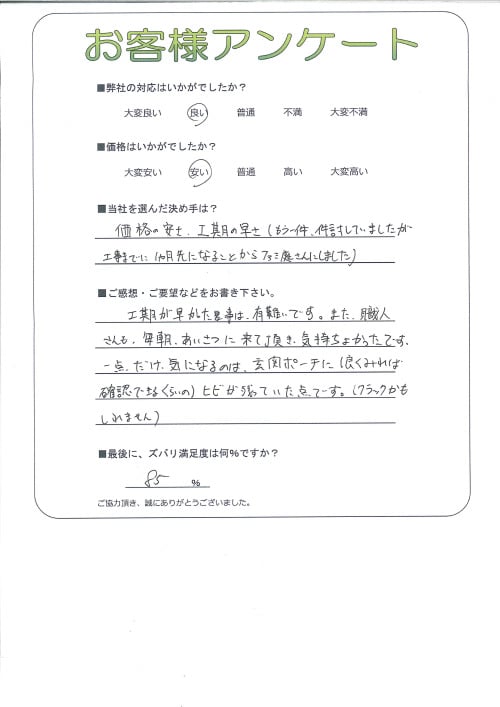 お客様アンケート
■弊社の対応はいかがでしたか？
大変良い 良い 普通 不満 大変不満
■価格はいかがでしたか？
大変安い 安い 普通 高い 大変高い
■当社を選んだ決め手は？
価格の安さ、工期の早さ（もう一件、件討していましたが
工事までに1ヵ月先になることからファミ庭さんにしました）
■ご感想・ご要望などをお書き下さい。
工期が早かった事は、有難いです。また、職人
さんも、毎朝、あいさつに来て頂き、気持ちよかったです。
一点だけ気になるのは、玄関ポーチに（良くみれば
確認できるくらいの）ヒビが張っていた点です。（クラックかも
しれません）
■最後に、ズバリ満足度は何%ですか？
85 %
ご協力頂き、誠にありがとうございました。